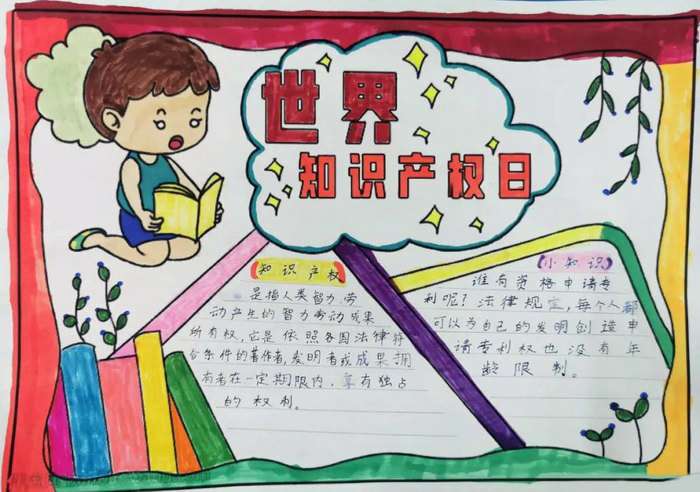 世界
知识产权日
知识产权
是指人类智力劳
动产生的智力劳动成果
所有权,它是依照各国法律符
合条件的著作者,发明者或成果拥
有者在一定期限内,享有独占
的权利。
小知识
谁有资格申请专
利呢?法律规定,每个人都
可以为自己的发明创造申
请专利权也没有年
龄限制。